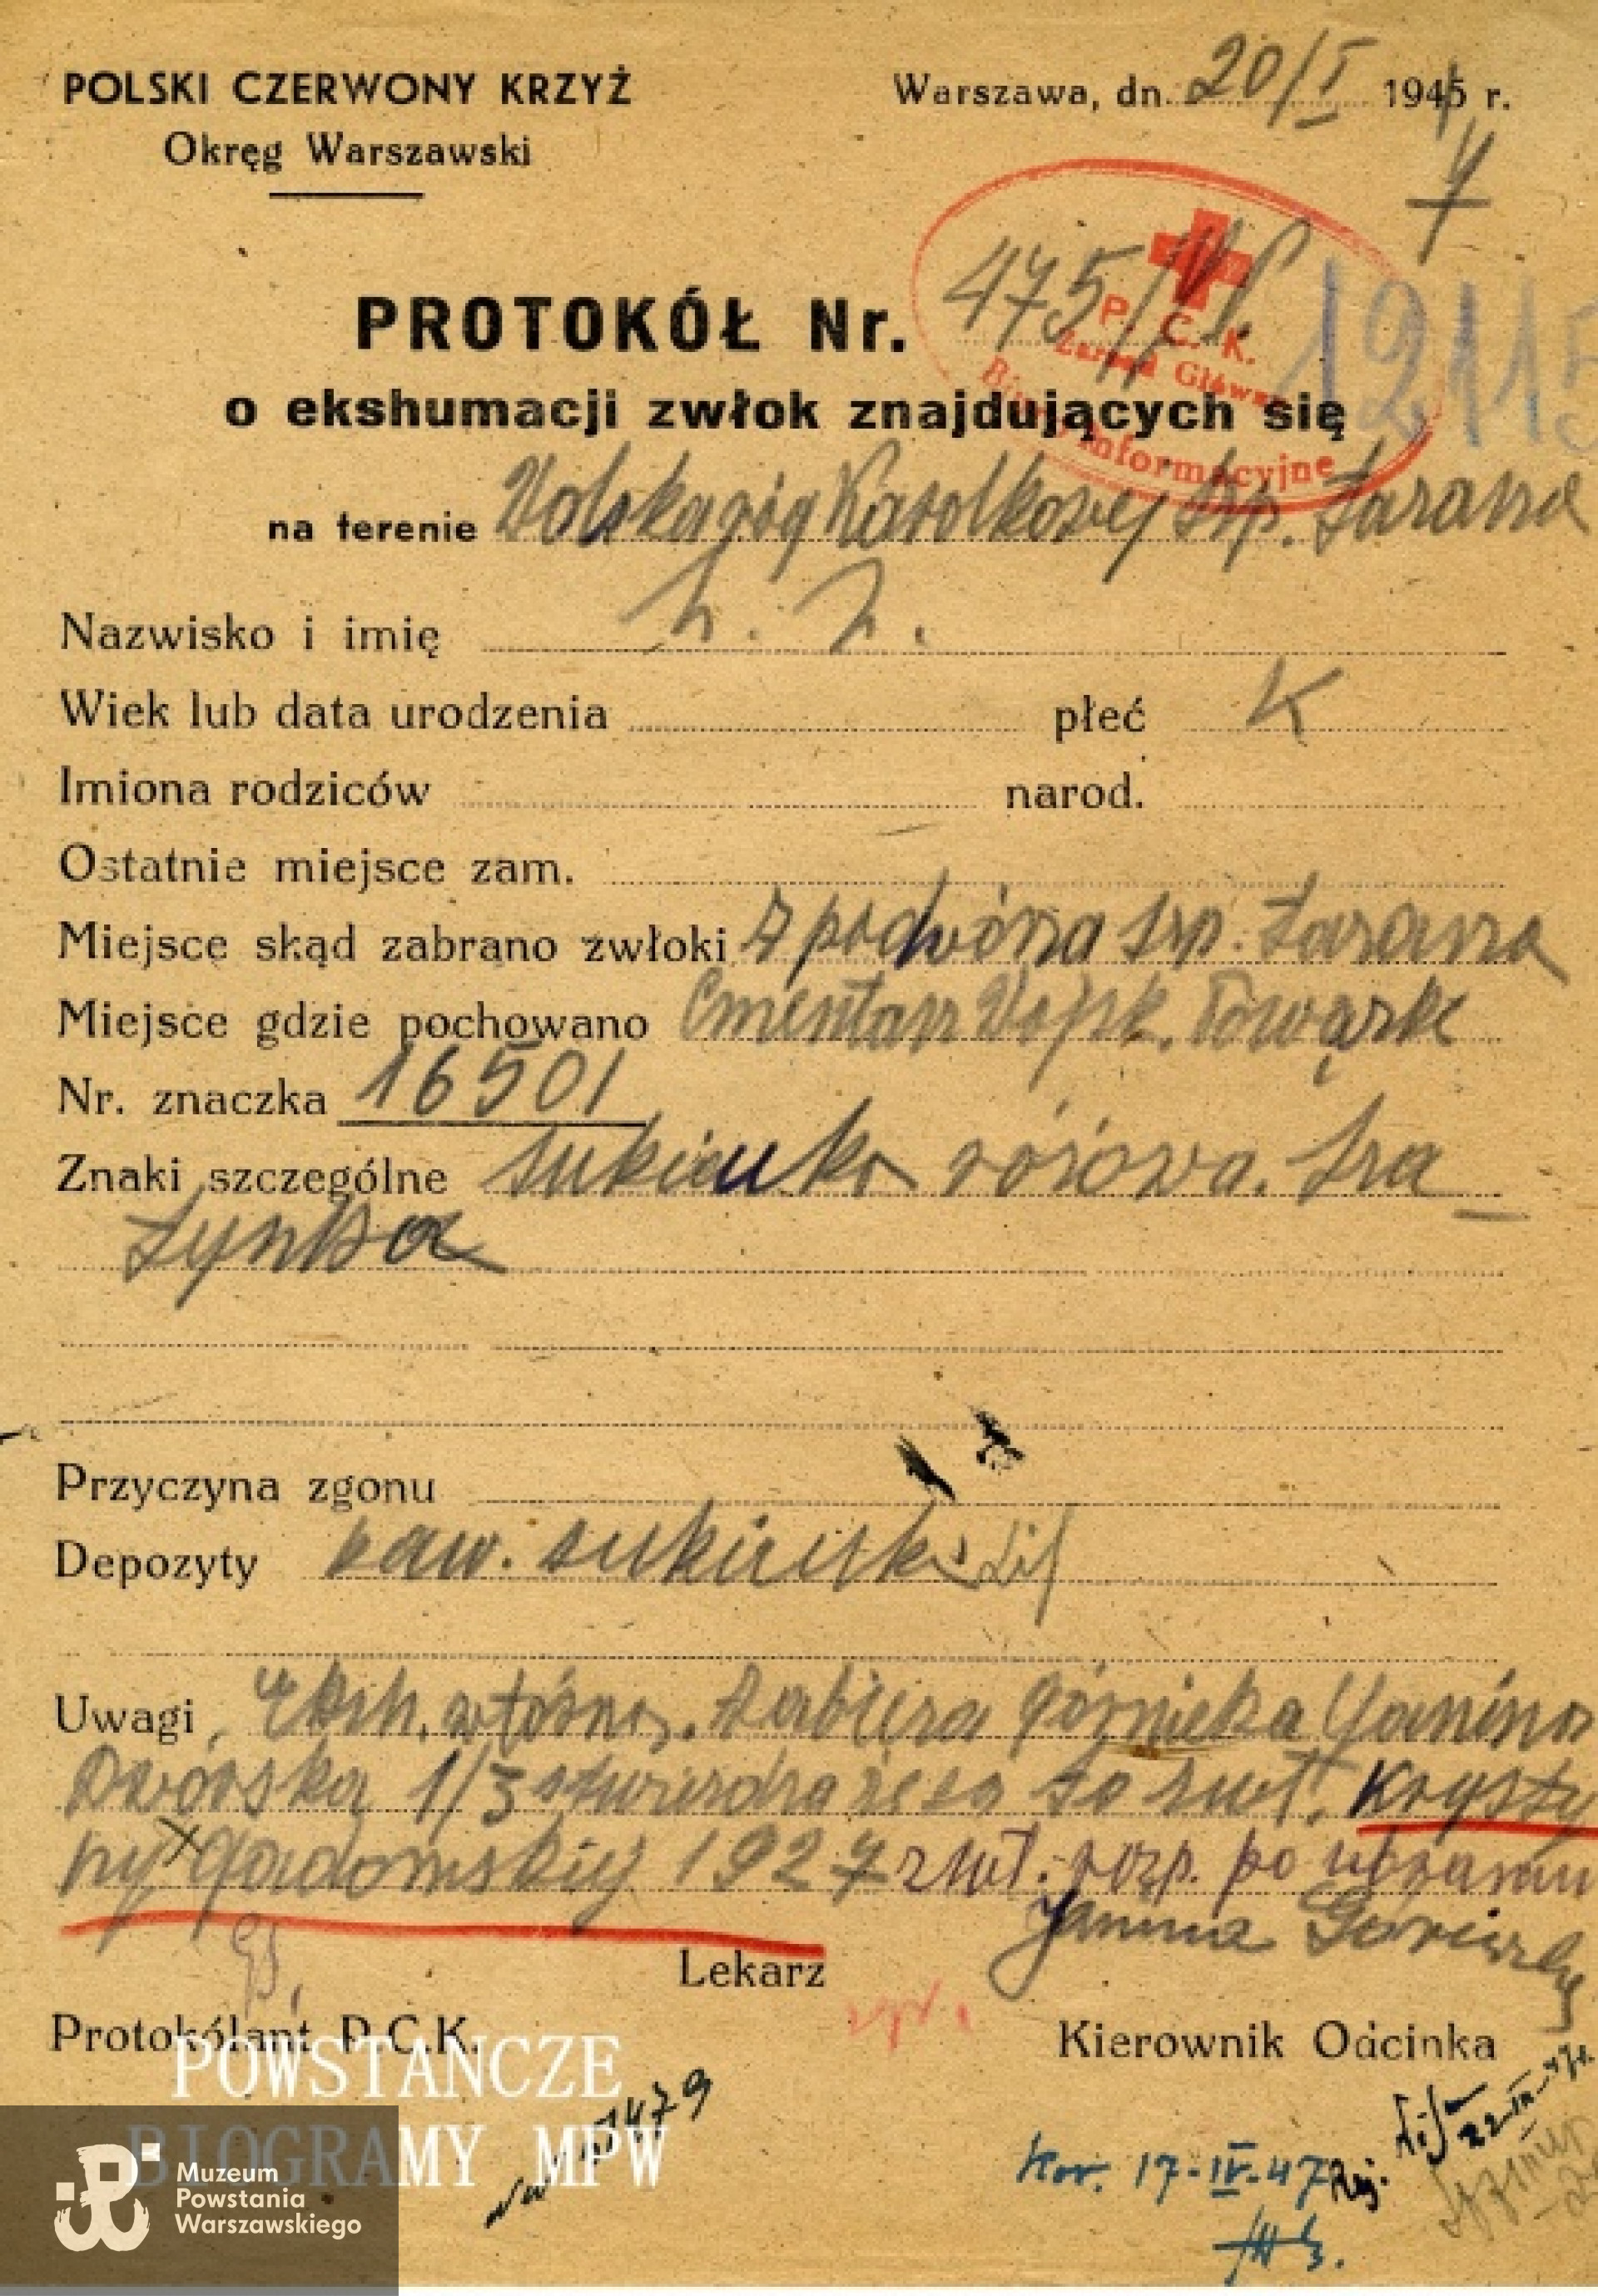 POLSKI CZERWONY KRZYŻ
Okręg Warszawski
Warszawa, dn. 20/I 1945 r.
7
PROTOKÓŁ Nr. 475/VI.
12115
P. C. K.
Zarząd Główny
Biuro Informacyjne
o ekshumacji zwłok znajdujących się
na terenie Wolska róg Karolkowej szp. Łazarza
Nazwisko i imię N. N.
Wiek lub data urodzenia płeć K
Imiona rodziców narod.
Ostatnie miejsce zam.
Miejsce skąd zabrano zwłoki z podwórza szp. Łazarza
Miejsce gdzie pochowano Cmentarz Wojsk. Powązki
Nr. znaczka 16501
Znaki szczególne sukienka różowa.
Przyczyna zgonu
Depozyty kaw. sukienki Lis
Uwagi Eksh. wtórna. Zabiera Górnicka Janina
Dworska 1/3 stwierdza że są to zwł. Krysty
ny Gadomskiej 1927 zwł. rozp. po ubraniu
Janina Górnicka
Lekarz
Protokólant P.C.K.
Kierownik Odcinka
Kor. 17-IV-47
Lis 22-IX-47r.
POWSTAŃCZE
BIOGRAMY MPW
Muzeum
Powstania
Warszawskiego